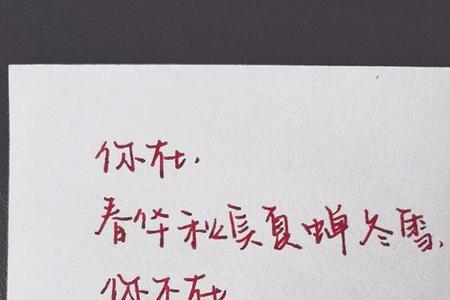 你在,
春华秋實夏蝉冬雪,
你不在